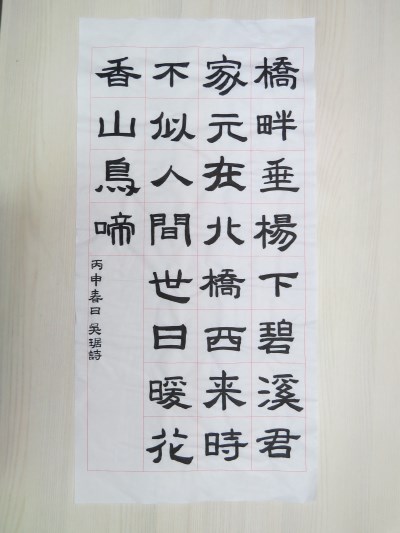 橋畔垂楊下碧溪君
家元在北橋西来時
不似人間世日暖花
香山鳥啼
丙申春日吳琚詩